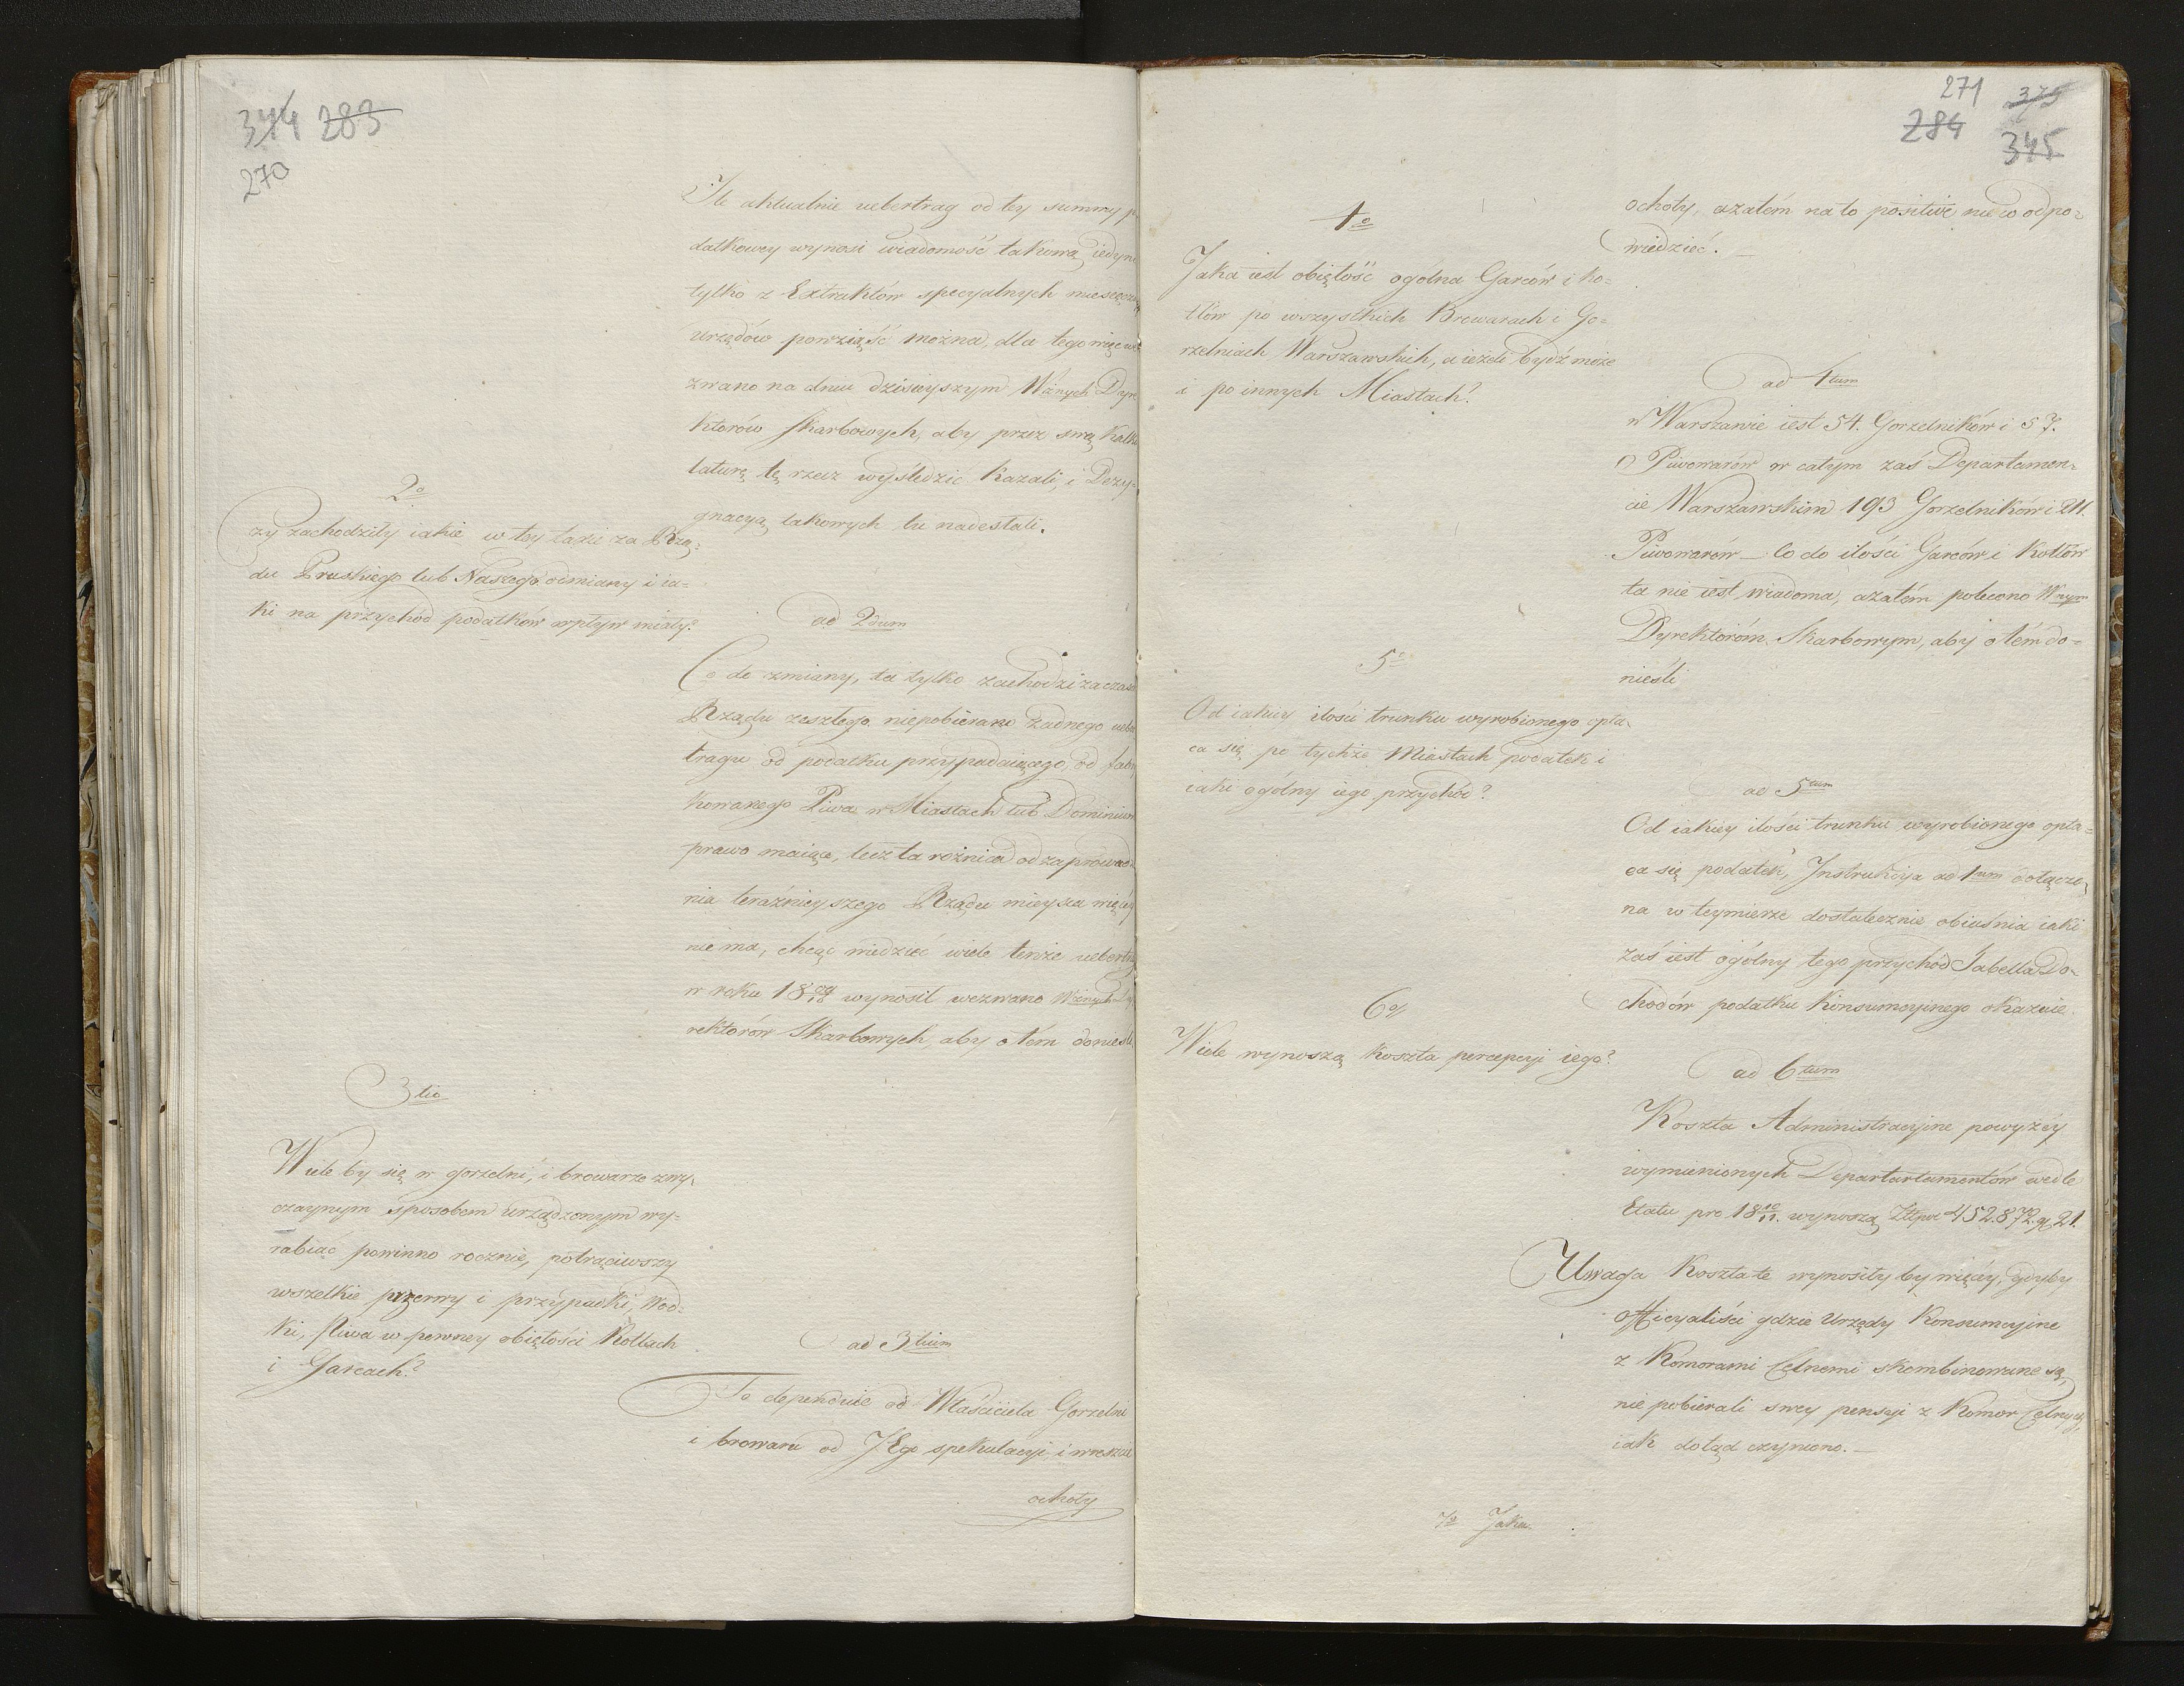 344 283
270
Ile aktualnie uebertrag od tey summy p
datkowey wynosi wiadomość takową iedyn
tylko z Extraktów specyalnych miesięczn
urzędów powziąść można, dla tego więc we
zwano na dniu dzisieyszym Wżnych Dyre
ktorów skarbowych, aby przez swą Kalku
laturę tę rzecz wyśledzić kazali, i Dezy-
gnacyą takowych tu nadesłali.
2o
Czy zachodziły iakie w tey taxie za Rzą-
du Pruskiego lub Naszego odmiany i ia-
ki na przychód podatków wpływ miały?
ad 2dum
Co do zmiany, ta tylko zachodzi za czasu
Rządu zeszłego niepobierano żadnego ueber
tragu od podatku przypadaiącego, od fabry
kowanego Piwa w Miastach lub Dominium
prawo maiące, lecz ta różnica od zaprowad-
nia teraźnieyszego Rządu mieysca więcey
nie ma, chcąc wiedzieć wiele tenże uebertra
w roku 18 09/10 wynosił wezwano Wżnych Dy
rektorów Skarbowych, aby o tém donieśli
3tio
Wiele by się w gorzelni, i browarze zwy-
czaynym sposobem urządzonym wy-
rabiać powinno rocznie, potrąciwszy
wszelkie przerwy i przypadki, Wód-
ki, Piwa w pewney obiętości Kotłach
i Garcach?
ad 3tium
To dependuie od Właściciela Gorzelni
i browaru od JEgo spekulacyi i wreszcie
ochoty
271 375
284 345
ochoty, azatém na to positive nie w odpo-
wiedzieć. _
4o
Jaka iest obiętość ogólna Garców i ko-
tłów po wszystkich Browarach i Go-
rzelniach Warszawskich, a ieżeli bydź może
i po innych Miastach?
ad 4tum
w Warszawie iest 54. Gorzelników i 57.
Piwowarów w całym zaś Departamen-
cie Warszawskim 193 Gorzelników i 211.
Piwowarów _ Co do ilości Garców i Kotłów
ta nie iest wiadoma, azatém polecono Wnym
Dyrektoróm Skarbowym, aby o tém do-
nieśli
5o
Od iakiey ilości trunku wyrobionego opła-
ca się po tychże Miastach podatek i
iaki ogólny iego przychód?
ad 5tum
Od iakiey ilości trunku wyrobionego opła-
ca się podatek, Instrukcya ad 1mum dołączo-
na w teymierze dostatecznie obiaśnia iaki
zaś iest ogólny tego przychód Tabella Do-
chodów podatku konsumcyinego okazuie.
6o
Wiele wynoszą koszta percepcyi iego?
ad 6tum
Koszta Administracyine powyżéy
wymienionych Departartamentów wedle
Etatu pro 18 10/11 wynoszą Złłpol 452.872. gr 21.
Uwaga Koszta te wynosiły by więcéy, gdyby
officyaliści gdzie Urzędy Konsumcyine
z Komorami Celnemi skombinowane są,
nie pobierali swey pensyi z Komor Celnych,
iak dotąd czyniono. _
7o Jaka